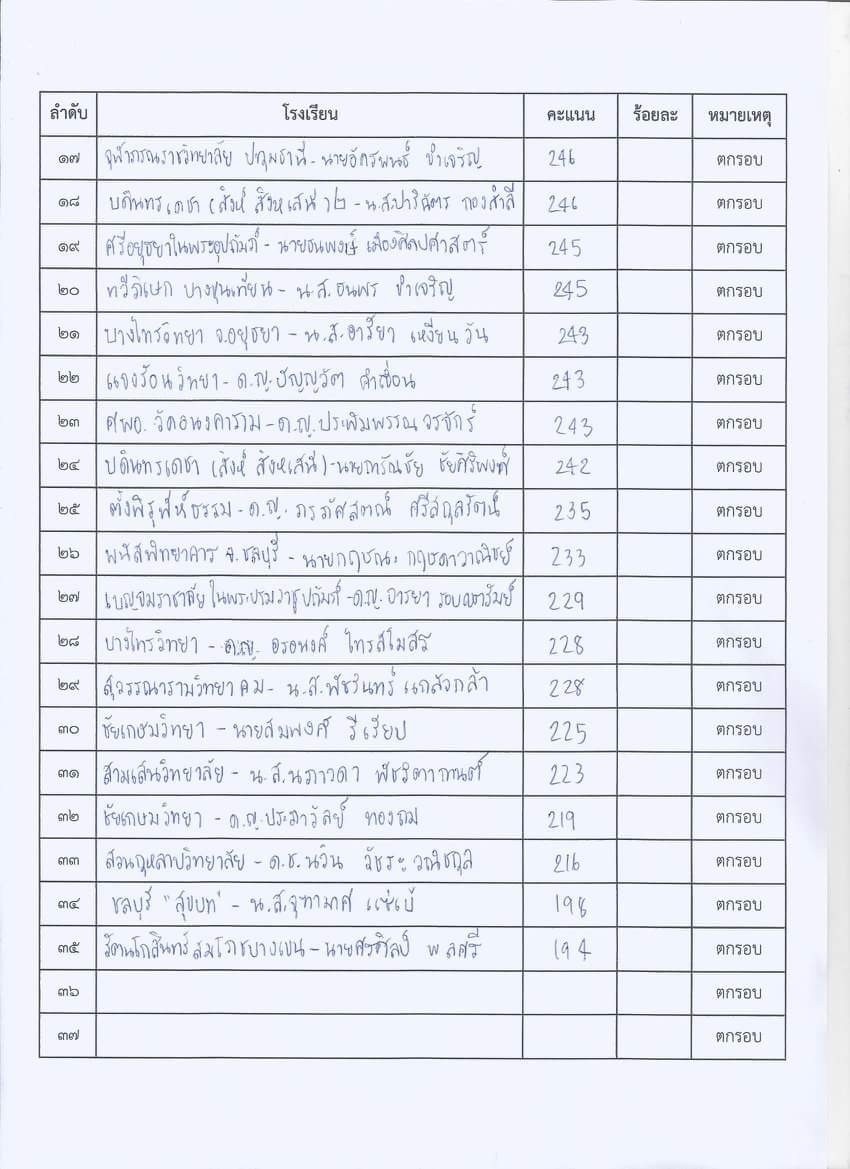 ลำดับ โรงเรียน คะแนน ร้อยละ หมายเหตุ
๑๗ จุฬาภรณราชวิทยาลัย ปทุมธานี - นายอัครพนธ์ ขำเจริญ 246 ตกรอบ
๑๘ บดินทรเดชา (สิงห์ สิงหเสนี) ๒ - น.ส.ปาริฉัตร กองสำลี 246 ตกรอบ
๑๙ ศรีอยุธยาในพระอุปถัมภ์ - นายธนพงษ์ เมืองศิลปศาสตร์ 245 ตกรอบ
๒๐ ทวีธาภิเษก บางขุนเทียน - น.ส. ธนพร ขำเจริญ 245 ตกรอบ
๒๑ บางไทรวิทยา จ.อยุธยา - น.ส.อารียา เหงี่ยนวัน 243 ตกรอบ
๒๒ แจงร้อนวิทยา - ด.ญ.ปัญญวัต คำเขื่อน 243 ตกรอบ
๒๓ ศพอ. วัดอนงคาราม - ด.ญ.ประพิมพรรณ วรจักร์ 243 ตกรอบ
๒๔ บดินทรเดชา (สิงห์ สิงหเสนี) - นายการัณชัย ชัยศิริพงศ์ 242 ตกรอบ
๒๕ ตั้งพิรุฬห์ธรรม - ด.ญ. ศรีสกุลรัตน์ 235 ตกรอบ
๒๖ พนัสพิทยาคาร จ.ชลบุรี - นายกฤษณะ กฤษดาวาณิชย์ 233 ตกรอบ
๒๗ เบญจมราชาลัย ในพระบรมราชูปถัมภ์ - ด.ญ. จารยา 229 ตกรอบ
๒๘ บางไทรวิทยา - ด.ญ. อรอนงค์ ไทรสโมสร 228 ตกรอบ
๒๙ สุวรรณารามวิทยาคม - น.ส.พัชรินทร์ แกล้วกล้า 228 ตกรอบ
๓๐ ชัยเกษมวิทยา - นายสมพงศ์ รีเรียบ 225 ตกรอบ
๓๑ สามเสนวิทยาลัย - น.ส.นภาวดา พัชริตากานต์ 223 ตกรอบ
๓๒ ชัยเกษมวิทยา - ด.ญ.ประภาวัลย์ ทองถม 219 ตกรอบ
๓๓ สวนกุหลาบวิทยาลัย - ด.ช.นวิน วัชระวณิชกุล 216 ตกรอบ
๓๔ ชลบุรี "สุขบท" - น.ส.จุฑามาศ แซ่เบ้ 198 ตกรอบ
๓๕ รัตนโกสินทร์สมโภชบางเขน - นายศรศิลป์ พลศรี 194 ตกรอบ
๓๖ ตกรอบ
๓๗ ตกรอบ